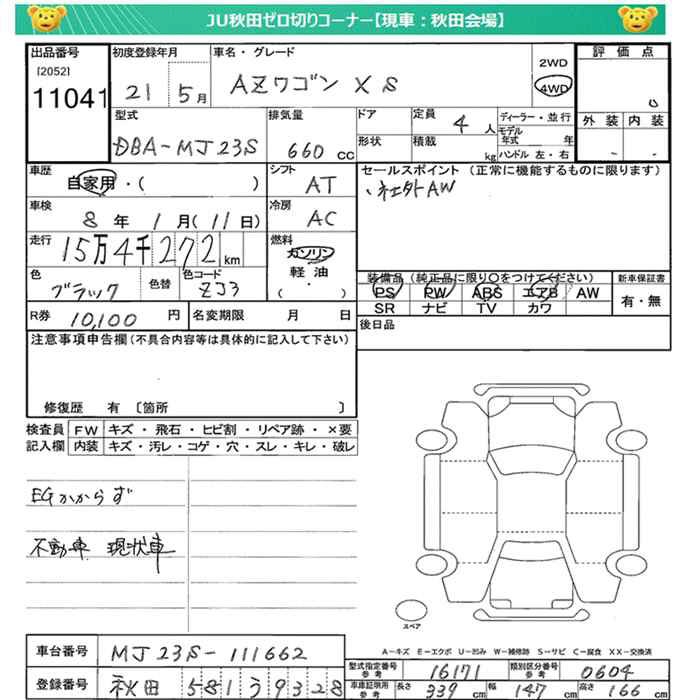 JU秋田ゼロ切りコーナー【現車：秋田会場】
出品番号
[2052]
11041
初度登録年月
21 5月
車名・グレード
AZワゴン XS
2WD
4WD
評価点
外装 内装
型式
DBA-MJ23S
排気量
660 cc
ドア
形状
定員
4人
積載
kg
ディーラー・並行
モデル年式 年
ハンドル 左・右
車歴
自家用・( )
シフト
AT
セールスポイント (正常に機能するものに限ります)
、社外AW
車検
8年 1月(11日)
冷房
AC
走行
15万4千272km
燃料
ガソリン
軽油
( ・ )
色
ブラック
色替
色コード
ZJ3
装備品 (純正品に限り○をつけてください)
PS PW ABS エアB AW
SR ナビ TV カワ
新車保証書
有・無
R券 10,100円
名変期限 月 日
後日品
注意事項申告欄(不具合内容等は具体的に記入して下さい)
修復歴 有 〔箇所 〕
検査員記入欄
FW キズ・飛石・ヒビ割・リペア跡・×要
内装 キズ・汚レ・コゲ・穴・スレ・キレ・破レ
EGかからず
不動車 現状車
スペア
A－キズ E－エクボ U－凹み W－補修跡 S－サビ C－腐食 XX－交換済
車台番号
MJ23S-111662
登録番号
秋田 581 う 9328
型式指定番号 参考
16171
類別区分番号 参考
0604
車庫証明用 参考
長さ 339 cm 幅 147 cm 高さ 166 cm